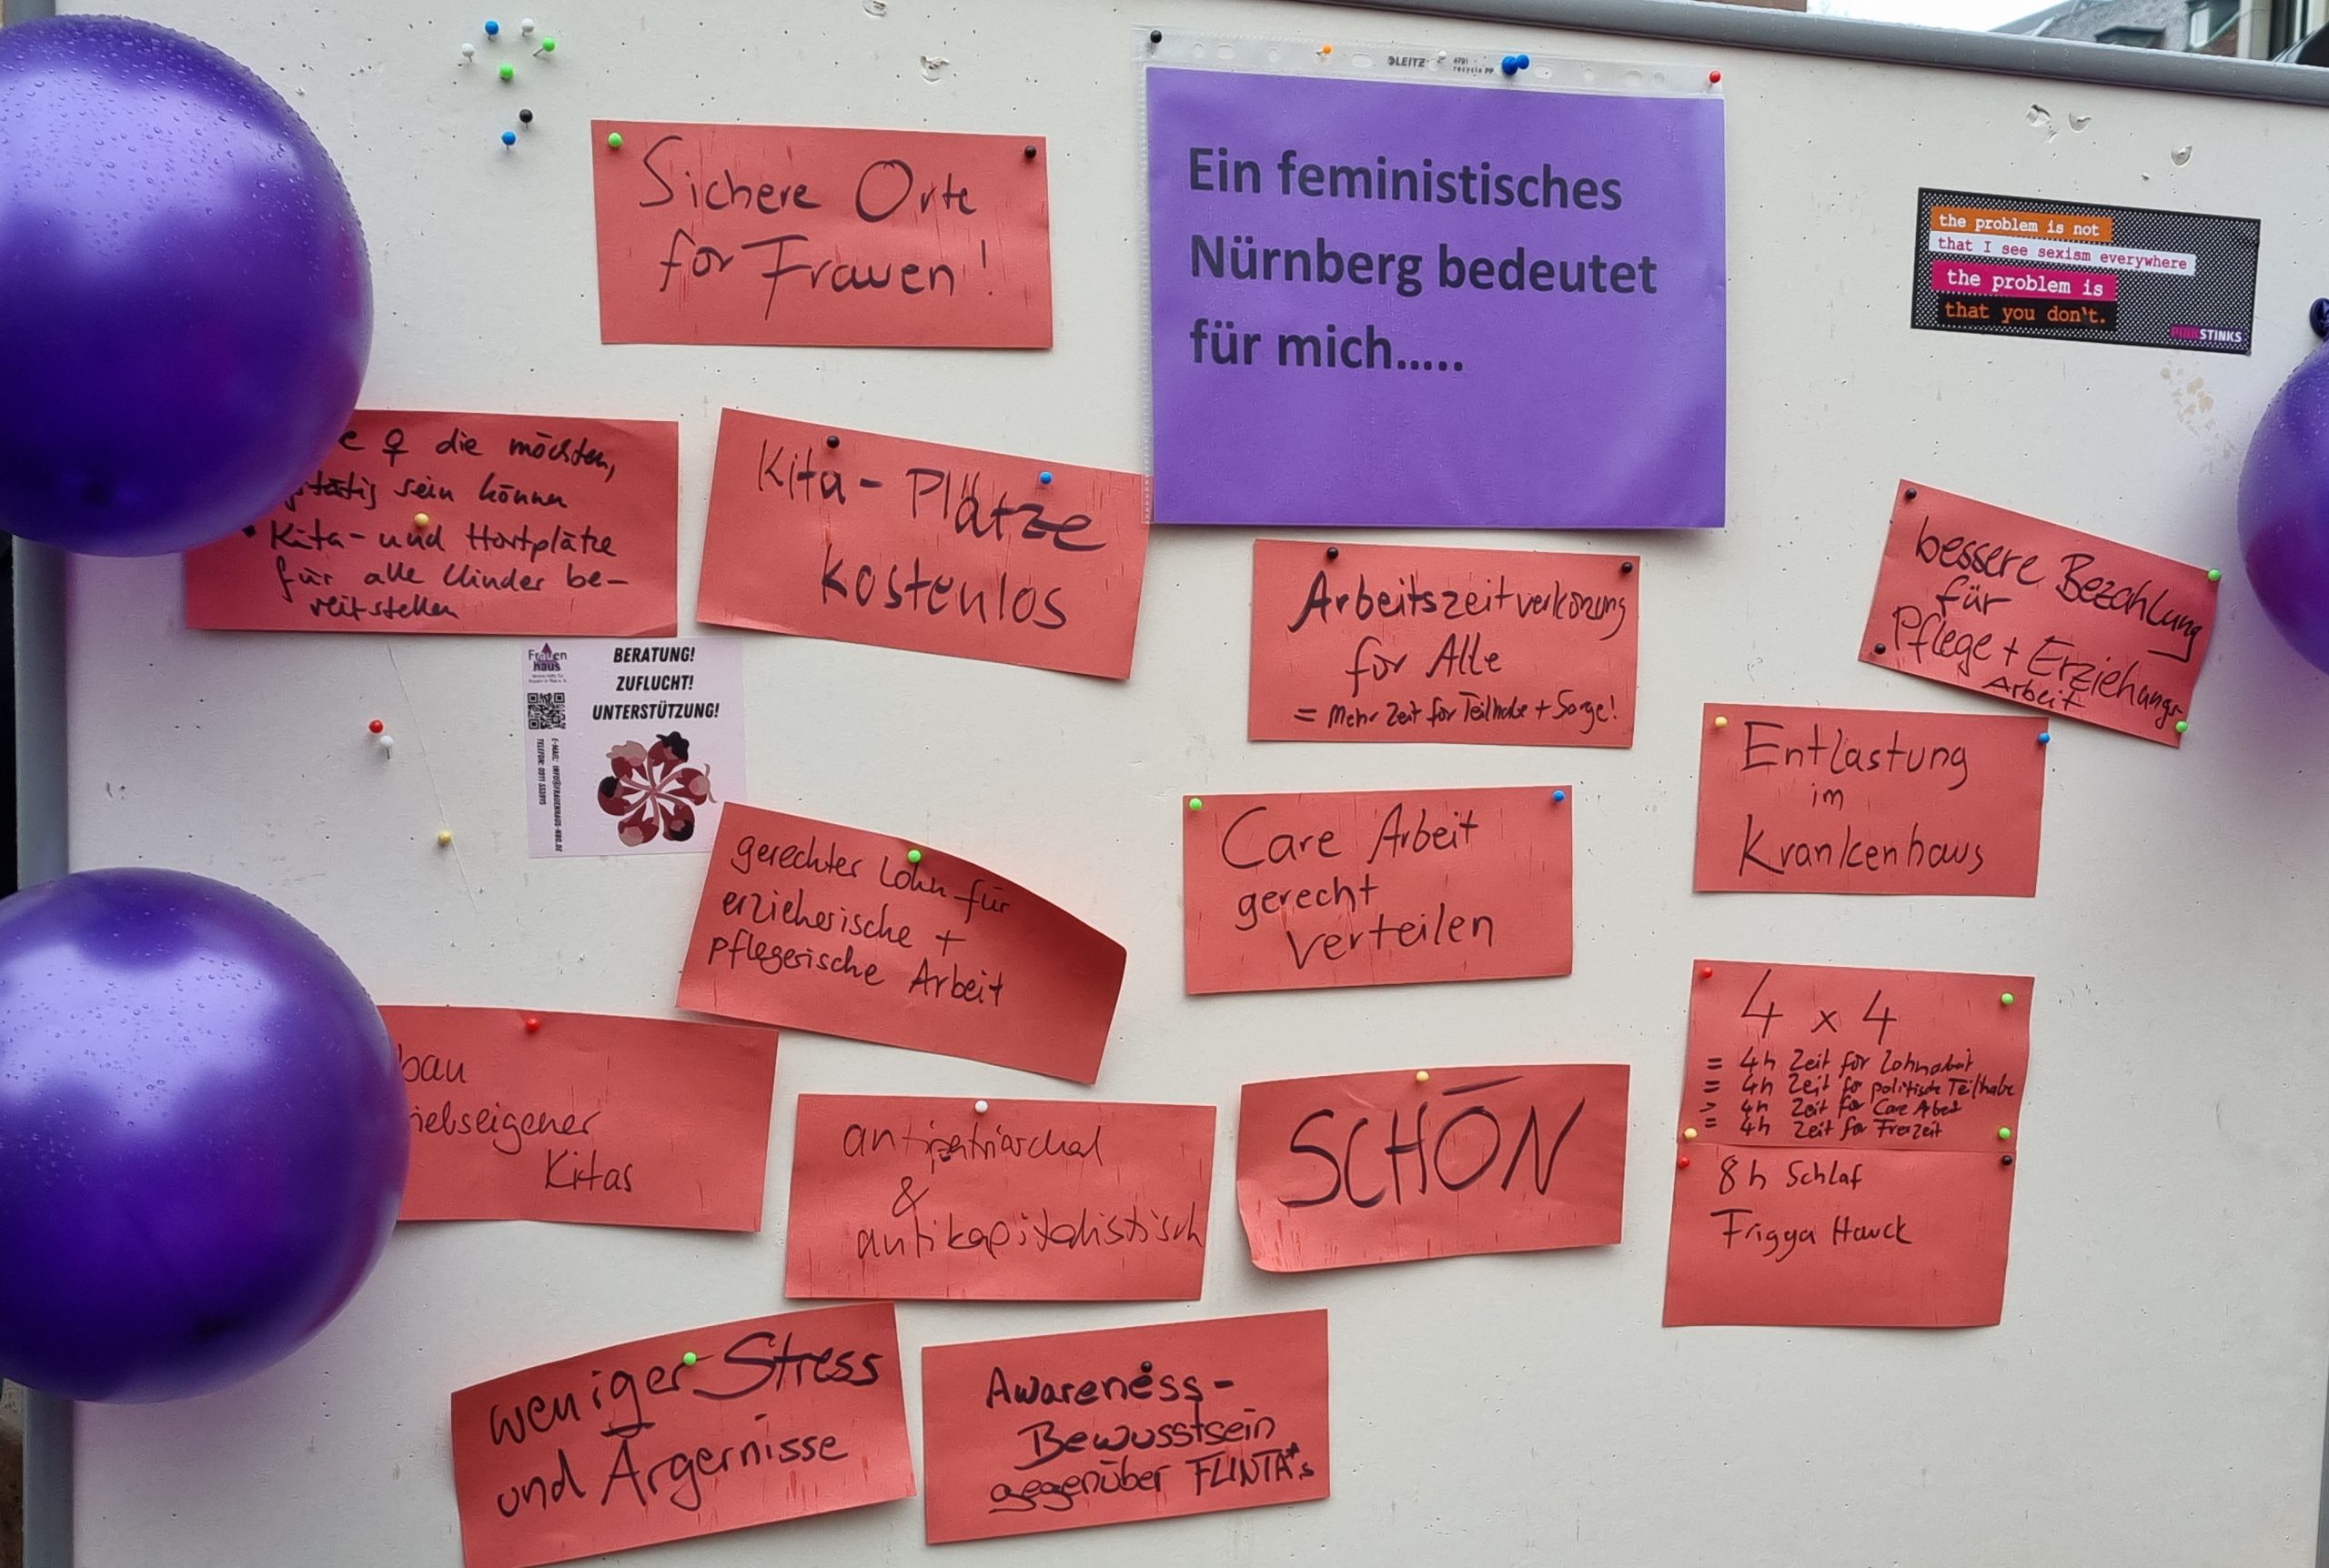 DLEITZ
4791
recycle PP
Ein feministisches
Nürnberg bedeutet
für mich.....
Sichere Orte
for Frauen!
the problem is not
that I see sexism everywhere
the problem is
that you don't.
PINKSTINKS
♀ die möchten,
sein können
• Kita- und Hortplätze
für alle Kinder be-
reitstellen
Kita-Plätze
kostenlos
Arbeitszeitverkürzung
für Alle
= Mehr Zeit für Teilhabe + Sorge!
bessere Bezahlung
für
Pflege + Erziehungs-
Arbeit
Frauen
haus
BERATUNG!
ZUFLUCHT!
UNTERSTÜTZUNG!
E-MAIL: INFO@FRAUENHAUS-NBG.DE
TELEFON: 0911 333915
Entlastung
im
Krankenhaus
gerechter Lohn für
erzieherische +
pflegerische Arbeit
Care Arbeit
gerecht
verteilen
4 x 4
= 4h Zeit für Lohnarbeit
= 4h Zeit für politische Teilhabe
= 4h Zeit für Care Arbeit
= 4h Zeit für Freizeit
8h Schlaf
Frigga Hauck
bau
iebseigener
Kitas
antipatriarchal
&
antikapitalistisch
SCHÖN
weniger Stress
und Ärgernisse
Awareness-
Bewusstsein
gegenüber FLINTA*s